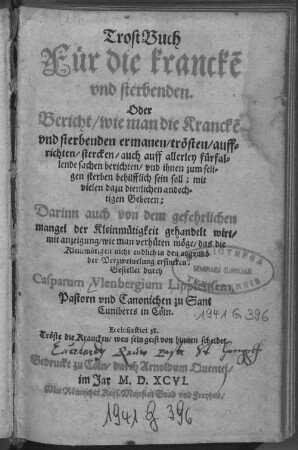 Trost Buch
Für die kranckē
vnd sterbenden.
Oder
Bericht / wie man die Kranckē
vnd sterbenden ermanen / trösten / auff-
richten / stercken / auch auff allerley fürfal-
lende sachen berichten / vnd ihnen zum seli-
gen sterben behilfflich sein soll; mit
vielen dazu dienlichen andech-
tigen Gebeten;
Darinn auch von dem gefehrlichen
mangel der Kleinmütigkeit gehandelt wirt /
mit anzeigung / wie man verhüten möge / das die
Kleinmütigen nicht endtlich in den abgrund
der Verzweivelung ersincken.
Gestellet durch
Casparum Vlenbergium Lippiensem,
Pastorn vnd Canonichen zu Sant
Cuniberts in Cöln.
1941 G 396
Ecclesiastici 38.
Tröste die Krancken / wen sein geist von hinnen scheidet.
Gedruckt zu Cöln / durch Arnoldum Quentel /
im Jar M. D. XCVI.
Mit Römischer Keys. Maiestat Gnad vnd Freyheit.
1941 G 396